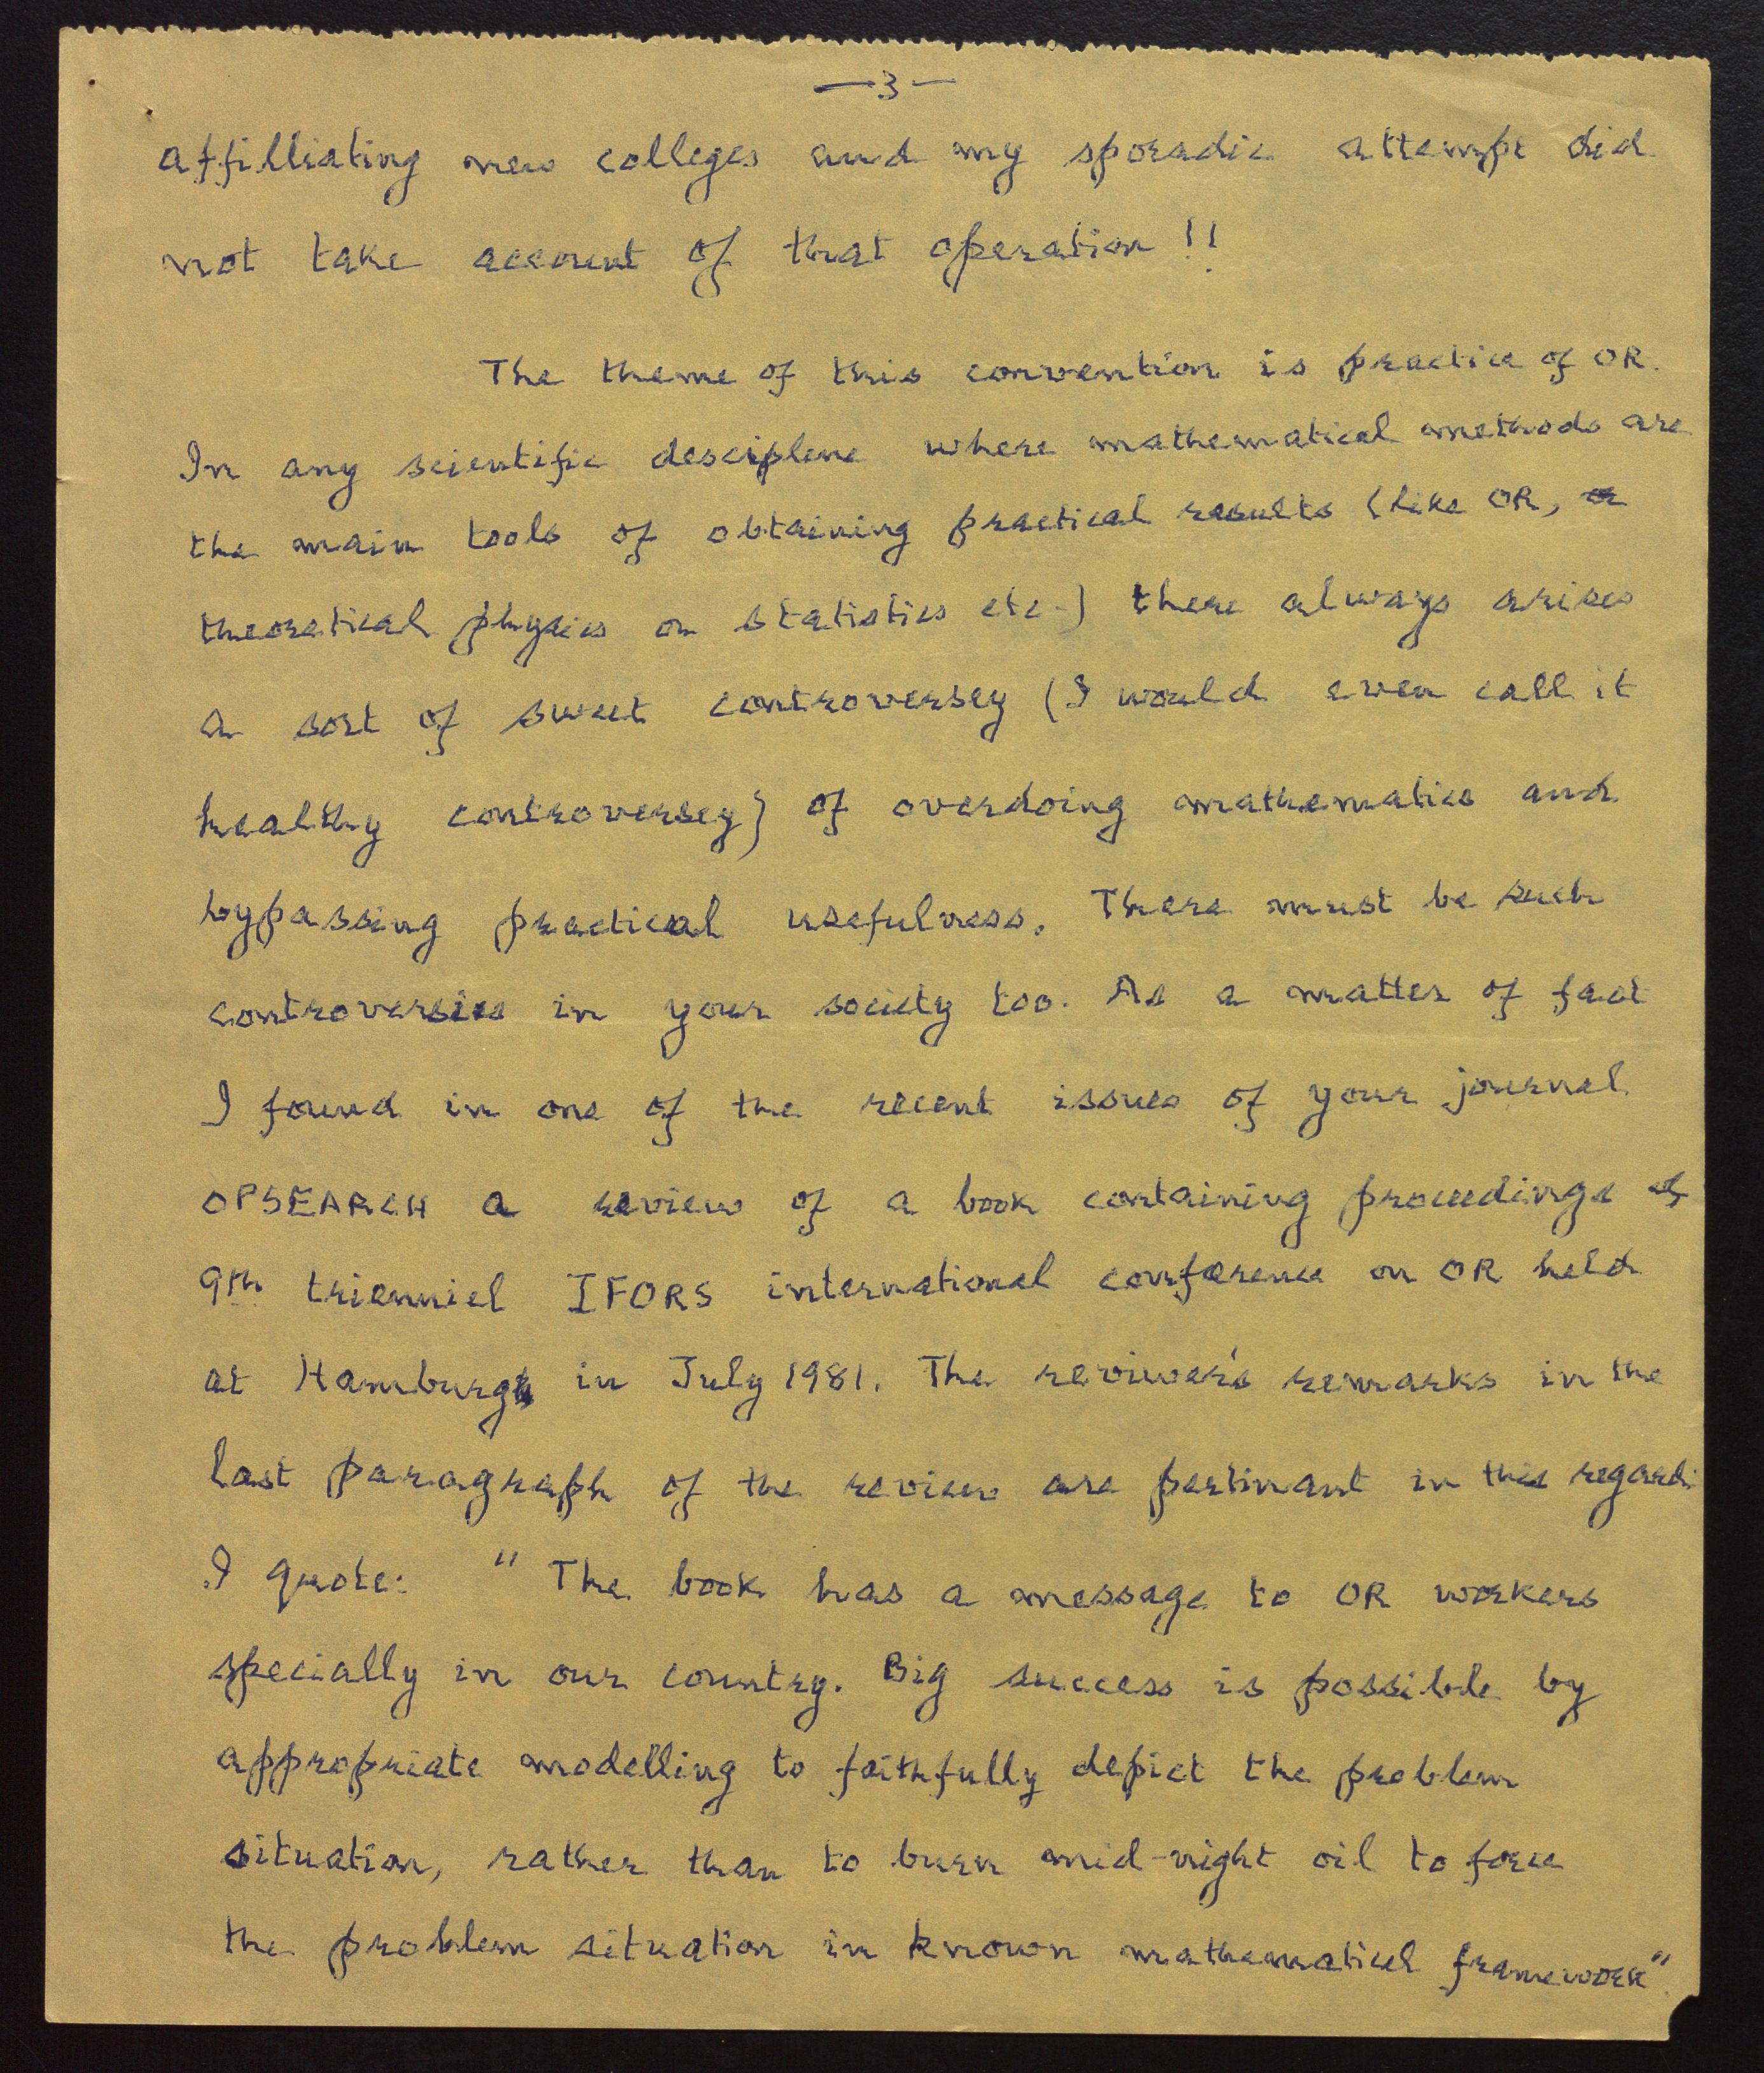 —3—
affilliating new colleges and my sporadic attempt did
not take account of that operation !!
The theme of this convention is practice of OR.
In any scientific descipline where mathematical methods are
the main tools of obtaining practical results (like OR,
theoretical physics or statistics etc.) there always arises
a sort of sweet controversey (I would even call it
healthy controversey) of overdoing mathematics and
bypassing practical usefulness. There must be such
controversies in your society too. As a matter of fact
I found in one of the recent issues of your journal
OPSEARCH a review of a book containing proceedings of
9th trienniel IFORS international conference on OR held
at Hamburg in July 1981. The reviwer's remarks in the
last paragraph of the review are pertinant in this regard.
I quote: "The book has a message to OR workers
specially in our country. Big success is possible by
appropriate modelling to faithfully depict the problem
situation, rather than to burn mid-night oil to force
the problem situation in known mathematical framework".